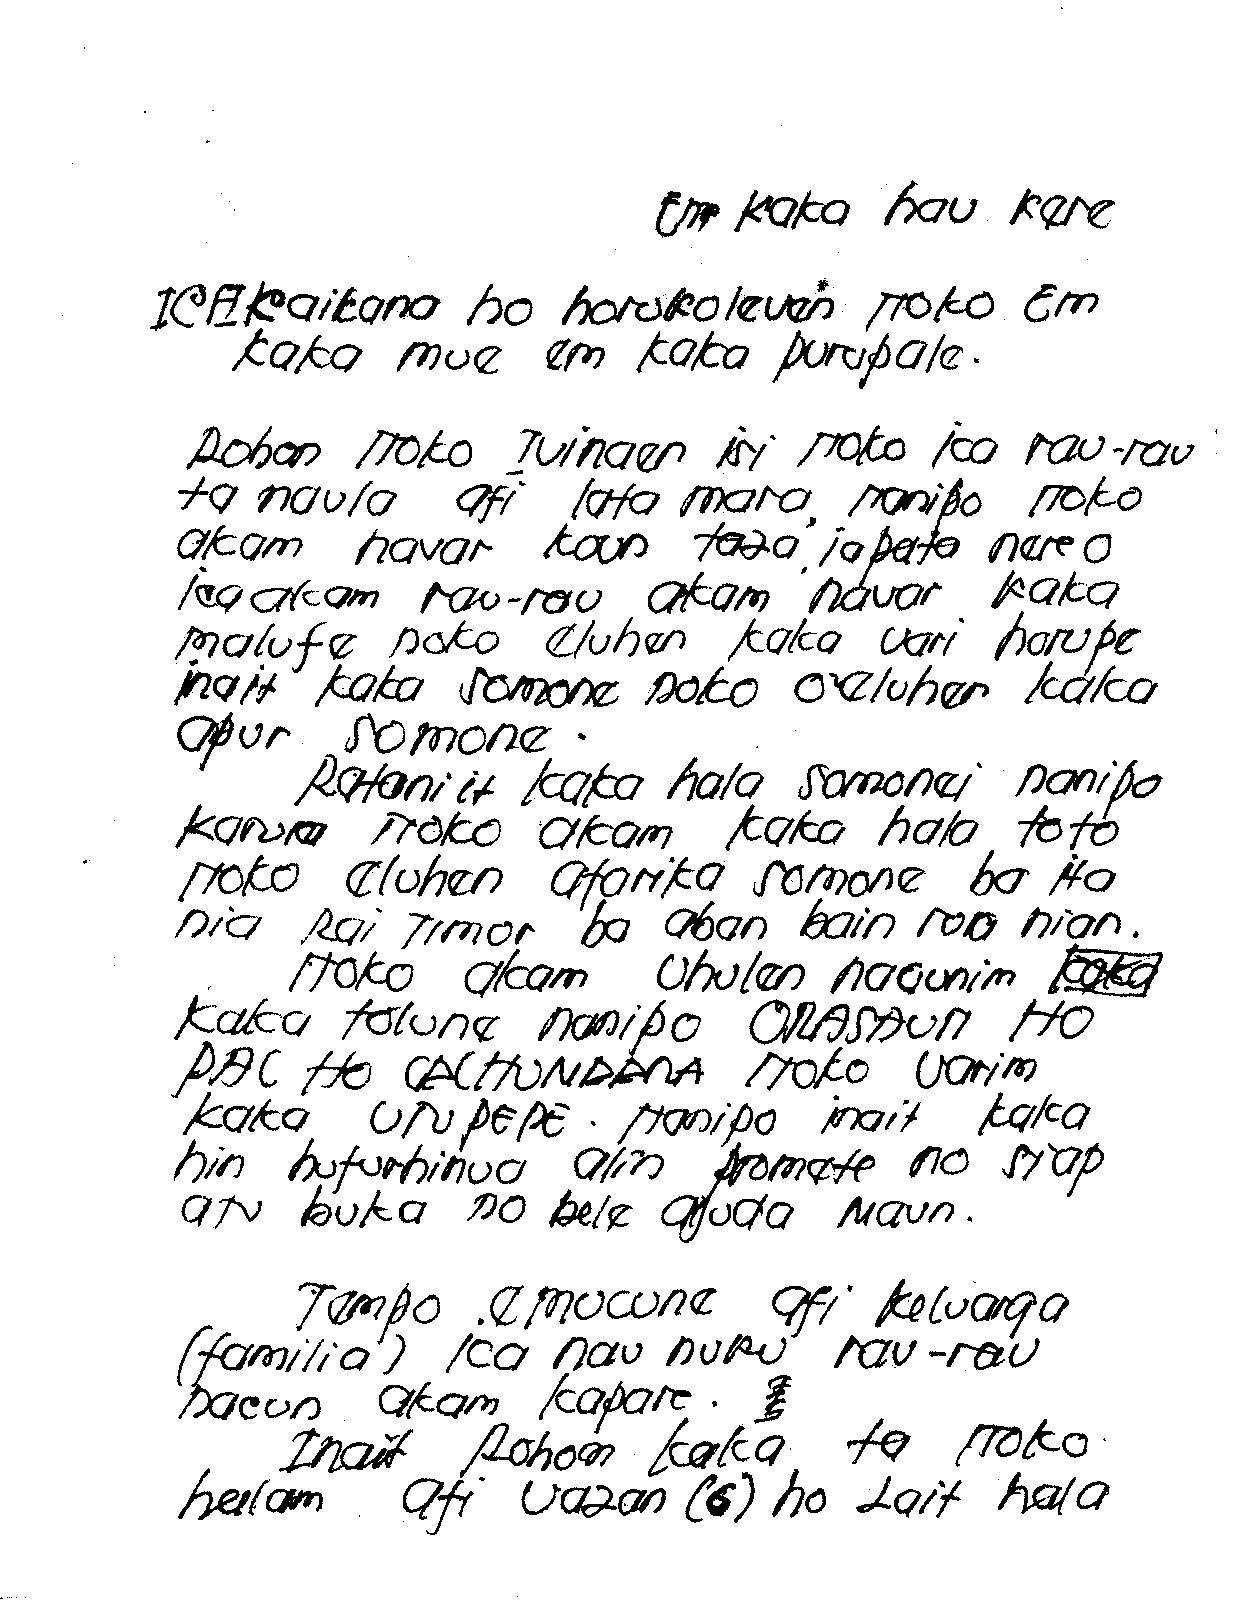 Em kaka hau kere
ICA kaikana ho horukoleven noko Em
kaka mue em kaka purupale.
Rohon noko Tuinaen isi noko ica rau-rau
ta naula afi lata mara, nanipo noko
akam havar koun taza, iapata nere o
ica akam rau-rau akam navar kaka
malufe noko eluhen kaka vari horupe
inait kaka somone noko o'eluhen kaka
apur somone.
Ratani it kaka hala somonei nanipo
karuru noko akam kaka hala toto
noko eluhen afarika somone ba ita
nia Rai Timor ba aban bain rua nian.
Noko akam Uhulen nacunim
kaka tolune nanipo ORASAUN HO
PAC HO CACHUNDANA noko varim
kaka URUPEPE. Nanipo inait kaka
hin hufurhinua alin promete no siap
atu buka no bele ajuda Maun.
Tempo emucune afi keluarga
(familia) Ica nau nuku rau-rau
nacun akam kapare.
Inait Rohon kaka ta noko
helam afi vazan (6) ho Lait hala